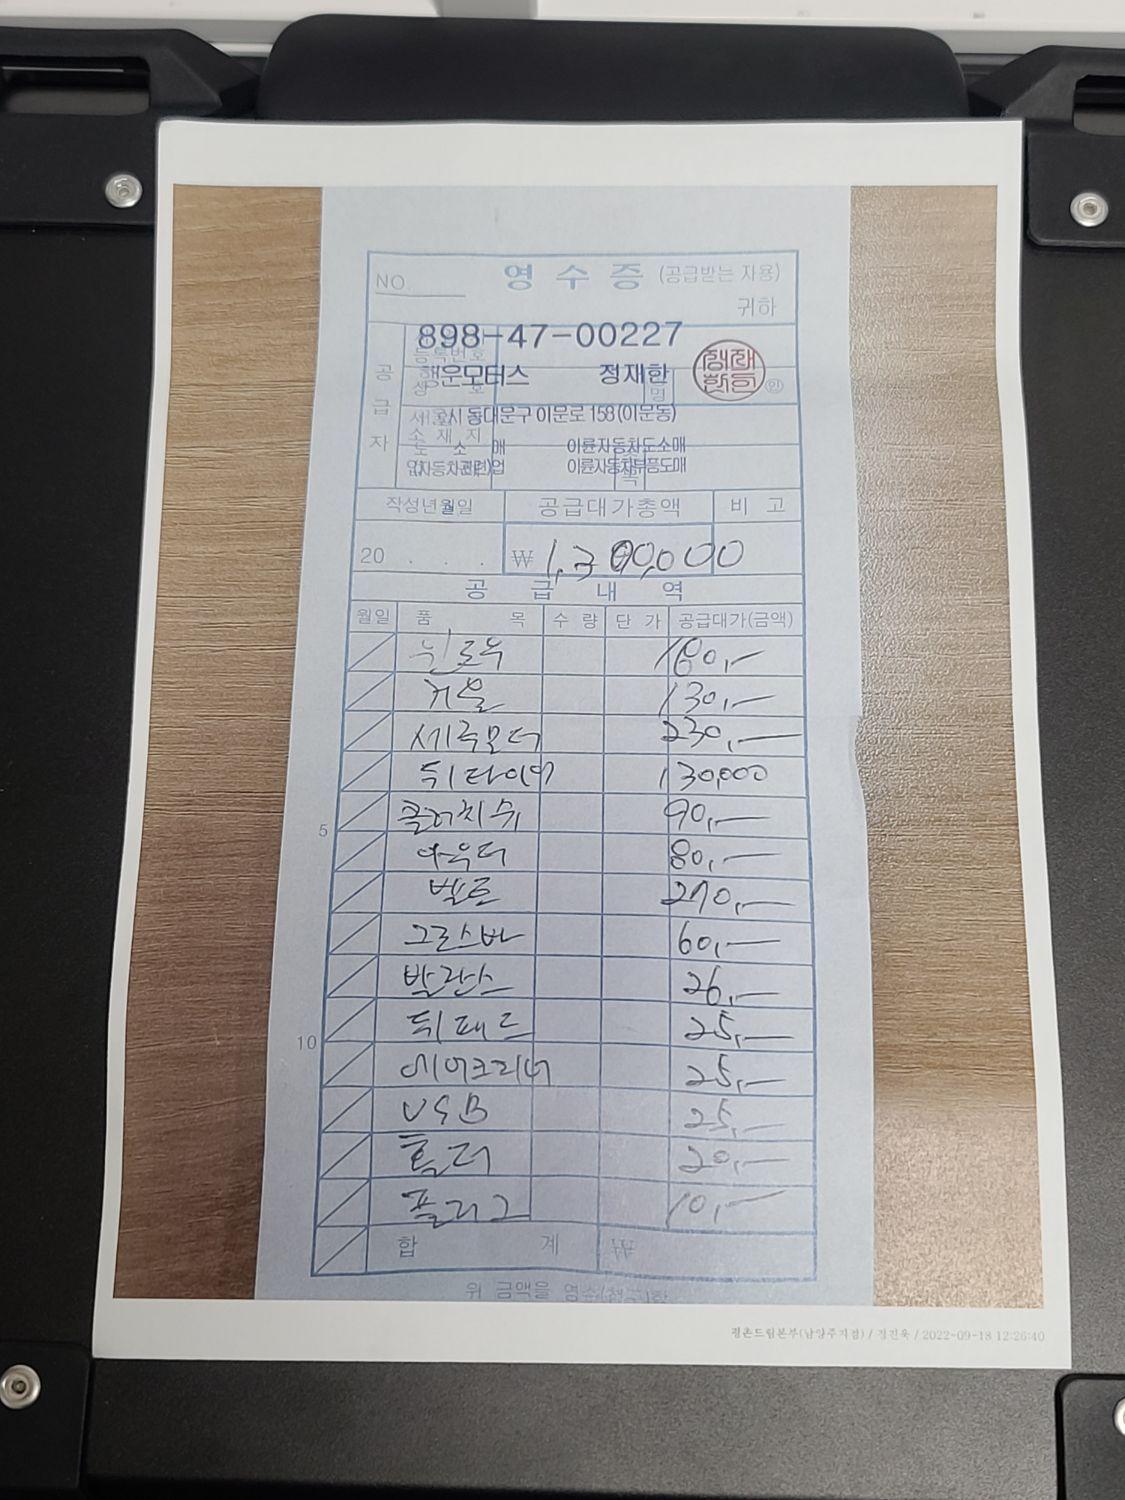 NO. 영 수 증 (공급받는 자용)
귀하
898-47-00227
등록번호
행운모터스 정재한
상 호 명 인
공급자
서울시 동대문구 이문로 158 (이문동)
소 재 지
도 소 매 이륜자동차도소매
(자동차관련)업 이륜자동차부품도매
작성년월일 공급대가총액 비 고
20 . . . ₩ 1,300,000
공 급 내 역
월일 품 목 수 량 단 가 공급대가(금액)
160,—
거울 130,—
세루모터 230,—
뒤타이어 130,000
클러치슈 90,—
5
아우더 80,—
벨로 270,—
그로스바 60,—
발란스 26,—
뒤패드 25,—
10
에어크리너 25,—
USB 25,—
홀더 20,—
플러그 10,—
합 계 ₩
위 금액을 영수(청구)함
평촌드림본부(남양주지점) / 정진욱 / 2022-09-18 12:26:40